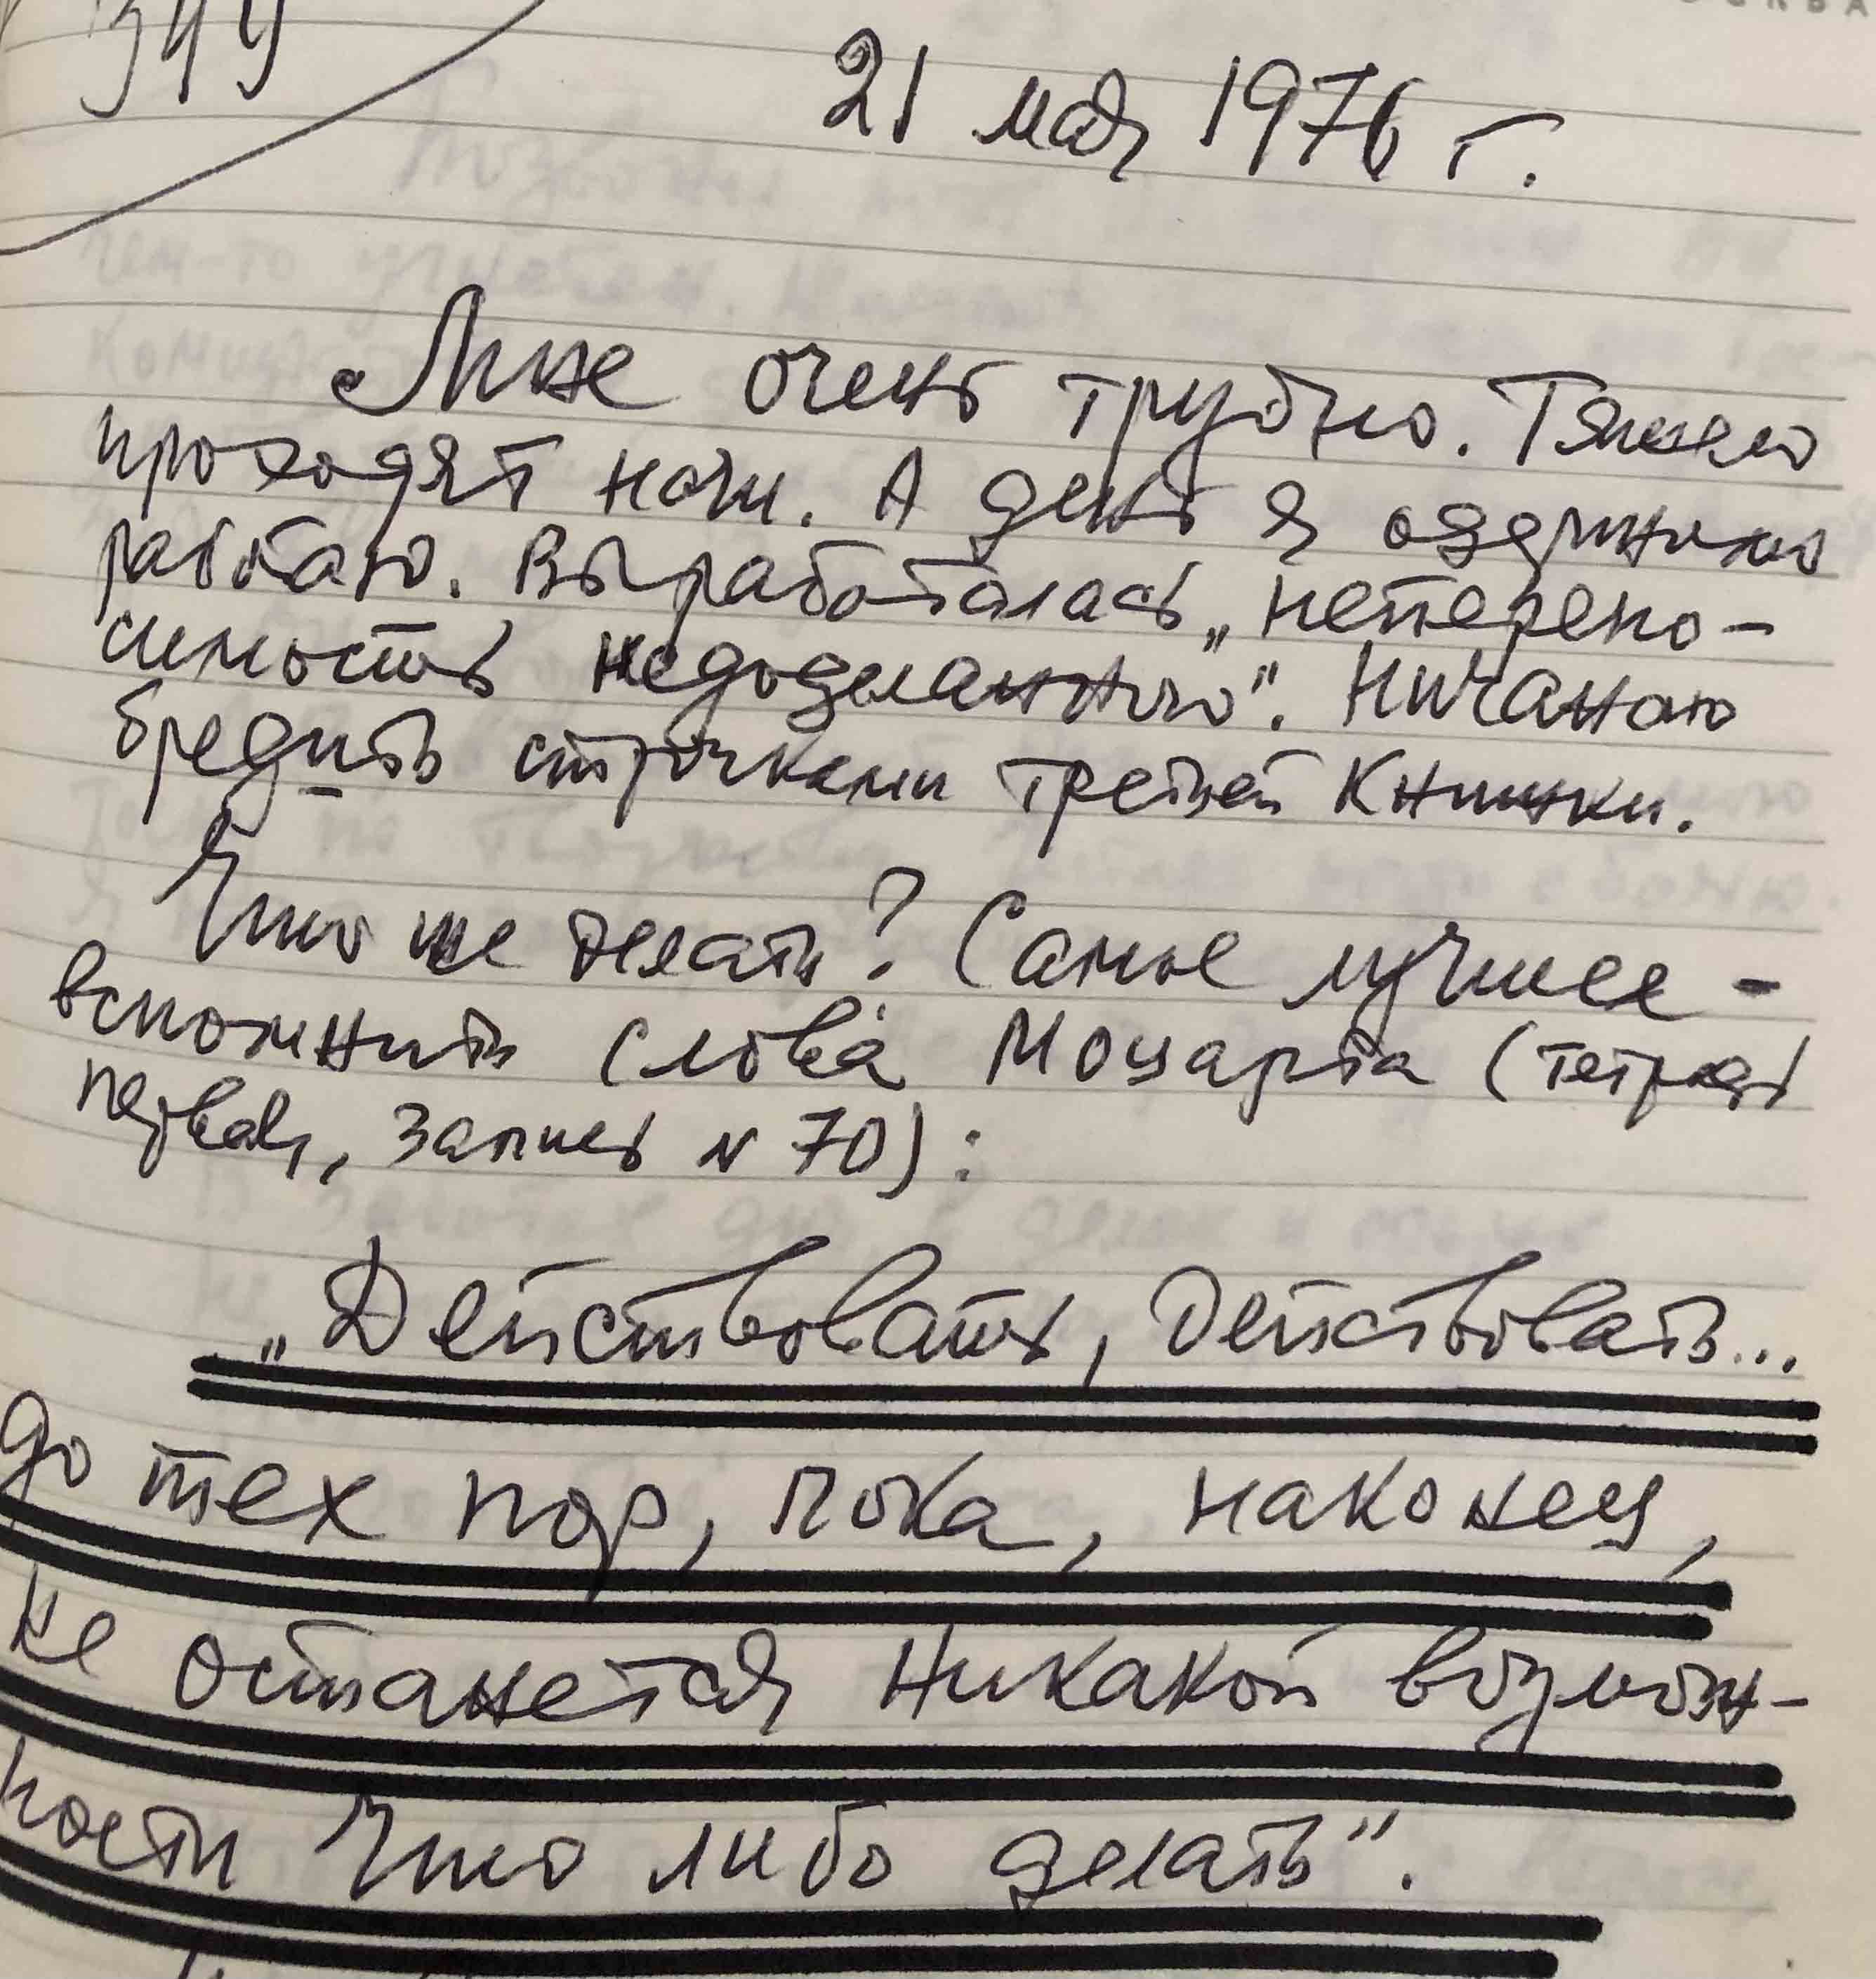 344
21 мая 1976 г.
Мне очень трудно. Тяжело
проходят ночи. А день я одержимо
работаю. Выработалась „неперено-
симость недоделанного“. Начинаю
бредить строчками третьей книжки.
Что же делать? Самое лучшее -
вспомнить слова Моцарта (тетрадь
первая, запись № 70):
„Действовать, действовать...
до тех пор, пока, наконец,
не останется никакой возмож-
ности что либо делать“.